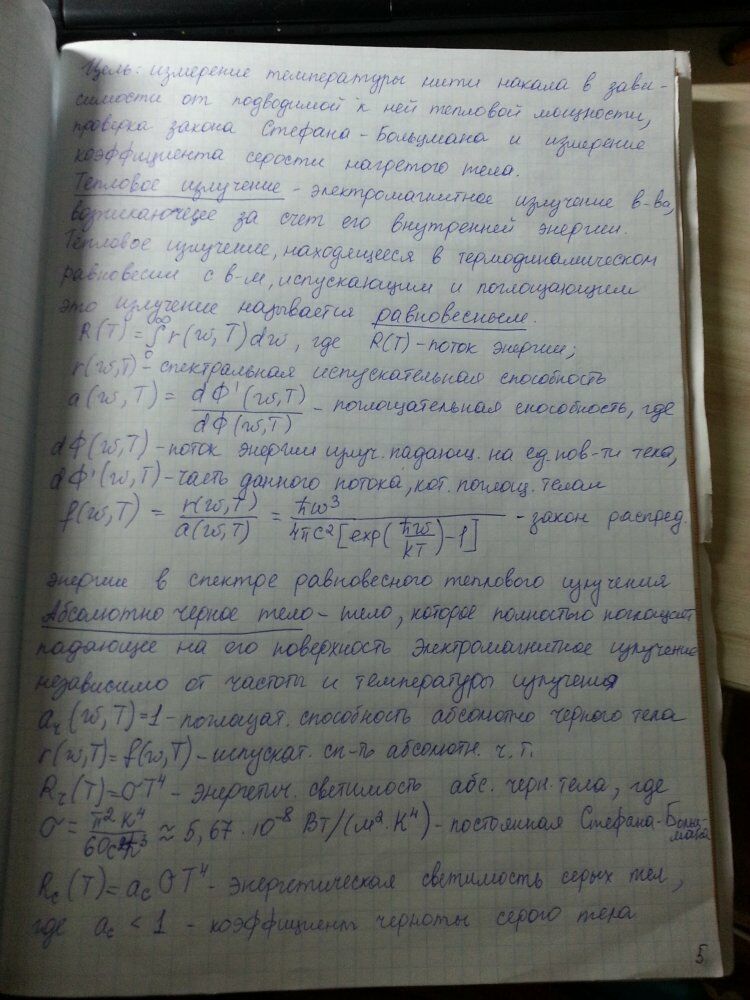 Цель: измерение температуры нити накала в зави-
симости от подводимой к ней тепловой мощности,
проверка закона Стефана-Больцмана и измерение
коэффициента серости нагретого тела.
Тепловое излучение - электромагнитное излучение в-ва,
возникающее за счет его внутренней энергии.
Тепловое излучение, находящееся в термодинамическом
равновесии с в-м, испускающим и поглощающим
это излучение называется равновесным.
R(T) = ∫₀^∞ r(ω,T)dω, где R(T) - поток энергии;
r(ω,T) - спектральная испускательная способность
a(ω,T) = dФ'(ω,T)/dФ(ω,T) - поглощательная способность, где
dФ(ω,T) - поток энергии излуч. падающ. на ед. пов-ти тела,
dФ'(ω,T) - часть данного потока, кот. поглощ. телом
f(ω,T) = r(ω,T)/a(ω,T) = ħω³/4πc²[exp(ħω/kT)-1] - закон распред.
энергии в спектре равновесного теплового излучения
Абсолютно черное тело - тело, которое полностью поглощает
падающее на его поверхность электромагнитное излучение
независимо от частоты и температуры излучения
aч(ω,T)=1 - поглощат. способность абсолютно черного тела
r(ω,T)=f(ω,T) - испускат. сп-ть абсолютн. ч. т.
Rч(T)=σT⁴ - энергетич. светимость абс. черн. тела, где
σ = π²K⁴/60c²ħ³ ≈ 5,67·10⁻⁸ Вт/(м²·К⁴) - постоянная Стефана-Больцмана
Rс(T)=aс σT⁴ - энергетическая светимость серых тел,
где aс < 1 - коэффициент черноты серого тела
5